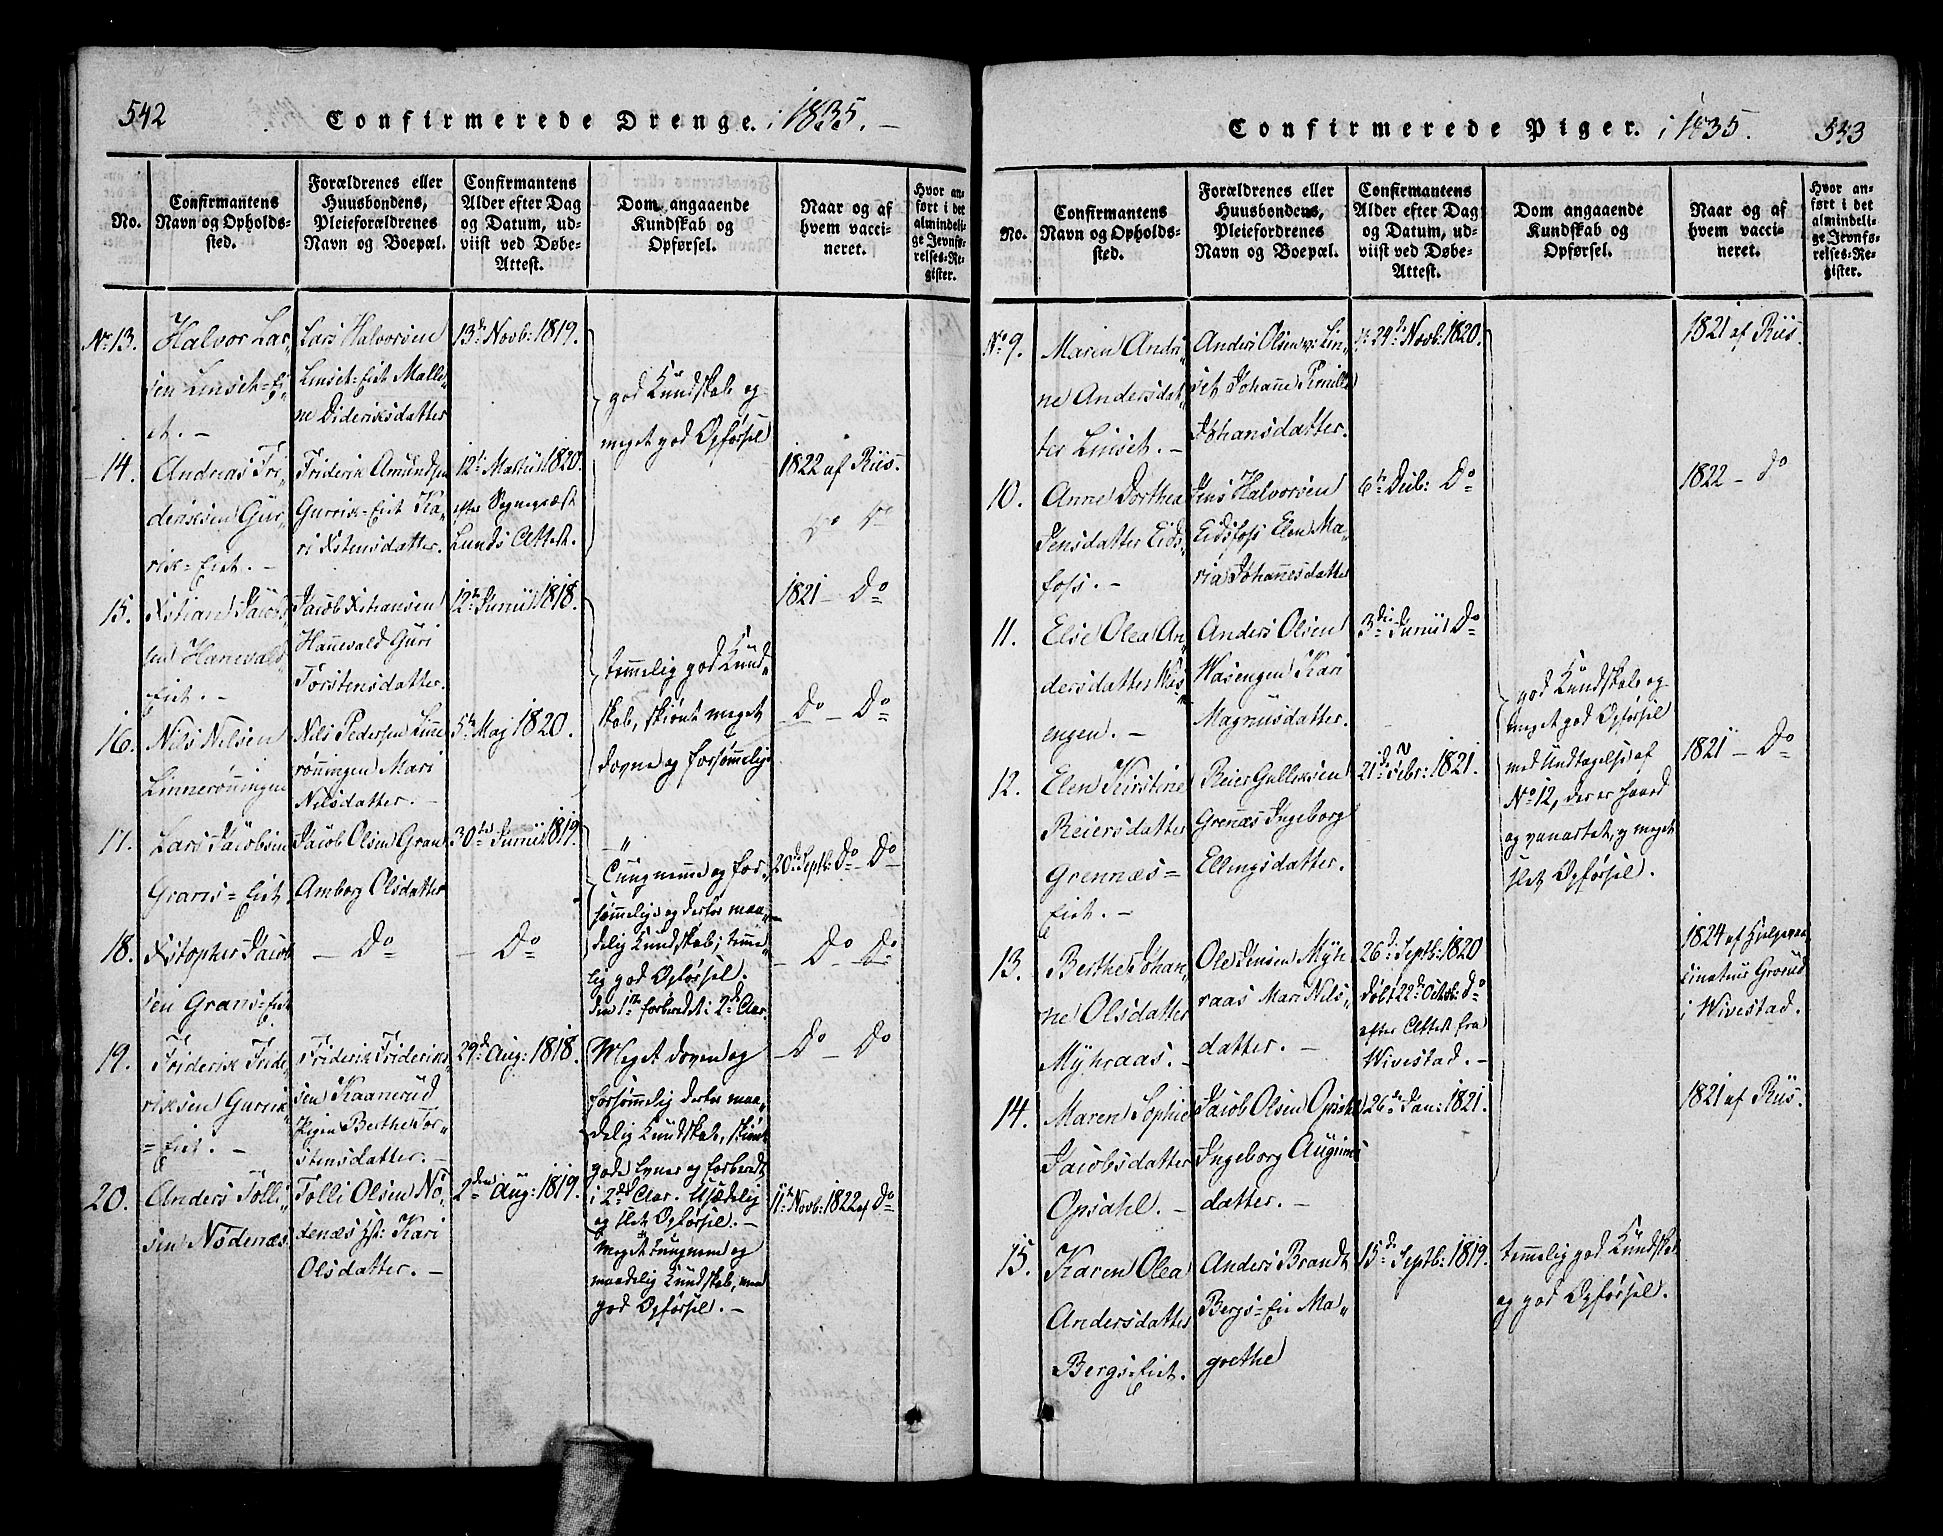 542
Confirmerede Drenge. i 1835. –
No.
Confirmantens
Navn og Opholds-
sted.
Forældrenes eller
Huusbondens,
Pleieforældrenes
Navn og Boepæl.
Confirmantens
Alder efter Dag
og Datum, ud-
viist ved Døbe-
Attest.
Dom angaaende
Kundskab og
Opførsel.
Naar og af
hvem vacci-
neret.
Hvor an-
ført i det
almindeli-
ge Jevnfø-
relses-Re-
gister.
No 13.
Halvor Lar„
sen Linset=Ei„
et. –
Lars Halvorsen
Linset=Eiet Malle„
ne Dideriksdatter
13d Novb: 1819.
god Kundskab og
meget god Opførsel
14.
Andreas Fri„
driksen Gur„
rik=Eiet. –
Friderik Amundsen
Gurrik=Eiet Ka„
ri Xstensdatter.
12t Martii 1820.
efter Sognepræst
Lunds Attest.
1822 af Riis.
Do Do
15.
Xstian Jacob„
sen Hanevald
Eiet. –
Jacob Xstiansen
Hanevald Guri
Torstensdatter.
12te Junii 1818.
temmelig god Kund„
skab, skiønt meget
doven og forsømmelig
1821 – Do
16.
Nils Nilsen
Linnerønningen
Nils Pedersen Linne
rønningen Mari
Nilsdatter. –
5te Maj 1820.
Do – Do
17.
Lars Jacobsen
Grans=Eiet
Jacob Olsen Gran
Amborg Olsdatter
30te Junii 1819.
– „
Tungnemme og for„
sømmelige og derfor maa„
delig Kundskab; temme„
lig god Opførsel.
den 1ste forberedt i 2det Aar.
20d Septb: Do – Do
18.
Xstopher Jacob
sen Grans=Eiet
– Do
– Do
– Do – Do
19.
Friderik Fride„
riksen Gurrik„
=Eiet. –
Friderik Frideriks„
sen Kaanerud
Pigen Berthe Tor„
stensdatter. –
29d Aug: 1818.
Meget doven og
forsømmelig derfor maa„
delig Kundskab, skiønt
gode Evner og forberedt
i 2det Aar. Usædelig
og slet Opførsel. –
Do – Do
20.
Anders Tolli„
sen Nødenæs.
Tolli Olsen Nø„
denæs Kari
Olsdatter. –
2den Aug: 1819.
Meget tungnem og
maadelig Kundskab, men
god Opførsel. –
11te Novb: 1822 af Do
Confirmerede Piger. i 1835.
543
No.
Confirmantens
Navn og Opholds-
sted.
Forældrenes eller
Huusbondens,
Pleiefordrenes
Navn og Boepæl.
Confirmantens
Alder efter Dag
og Datum, ud-
viist ved Døbe-
Attest.
Dom angaaende
Kundskab og
Opførsel.
Naar og af
hvem vacci-
neret.
Hvor an-
ført i det
almindeli-
ge Jevnfø-
relses-Re-
gister.
No 9.
Maren Andri„
ne Andersdat„
ter Linset. –
Anders Olsen Lin„
set Johanne Pernille
Johansdatter.
24d Novb: 1820.
1821 af Riis.
10.
Anne Dorthea
Jensdatter Eids„
foss. –
Jens Halvorsen
Eidsfoss Elen Ma„
ria Johannesdatter
6te Decb: Do
1822 – Do
11.
Else Olea An„
dersdatter Was„
engen. –
Anders Olsen
Wasengen Kari
Magnusdatter.
3die Junii Do
god Kundskab og
meget god Opførsel
med Undtagelse af
No 12, der er haard
og vanartet, og meget
slet Opførsel.
12.
Elen Kirstine
Reiersdatter
Grennæs=
Eiet. –
Reier Gulliksen
Grenæs Ingeborg
Ellingsdatter.
21de Febr: 1821.
1821 – Do
13.
Berthe Johan„
ne Olsdatter
Myhraas. –
Ole Jensen Myh
raas Mari Nils„
datter. –
26d Septb: 1820
døbt 22d Octob: Do
efter Attest fra
Wivestad. –
1824 af Hjelpevac
cinatuer Grorud
i Wivestad.
14.
Maren Sophie
Jacobsdatter
Opsahl. –
Jacob Olsen Opsahl
Ingeborg Augunds
datter. –
26de Jan: 1821.
1821 af Riis.
15.
Karen Olea
Andersdatter
Bergs=Eiet.
Anders Brandt
Bergs=Eie Ma„
grethe
15d Septb: 1819.
temmelig god Kundskab
og god Opførsel.